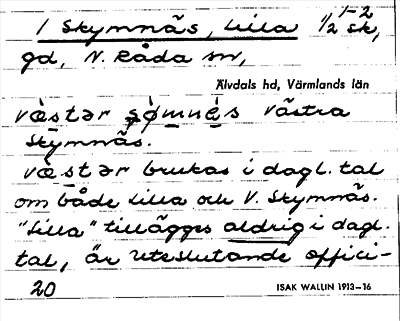 1 Skymnäs, Lilla 1/2 sk,
1-2
gd, N. Råda sn,
Älvdals hd, Värmlands län
væstər ʂømnæ̀s västra
Skymnäs.
væstər brukas i dagl. tal
om både Lilla och V. Skymnäs.
"Lilla" tillägges aldrig i dagl.
tal, är uteslutande offici-
20
ISAK WALLIN 1913-16